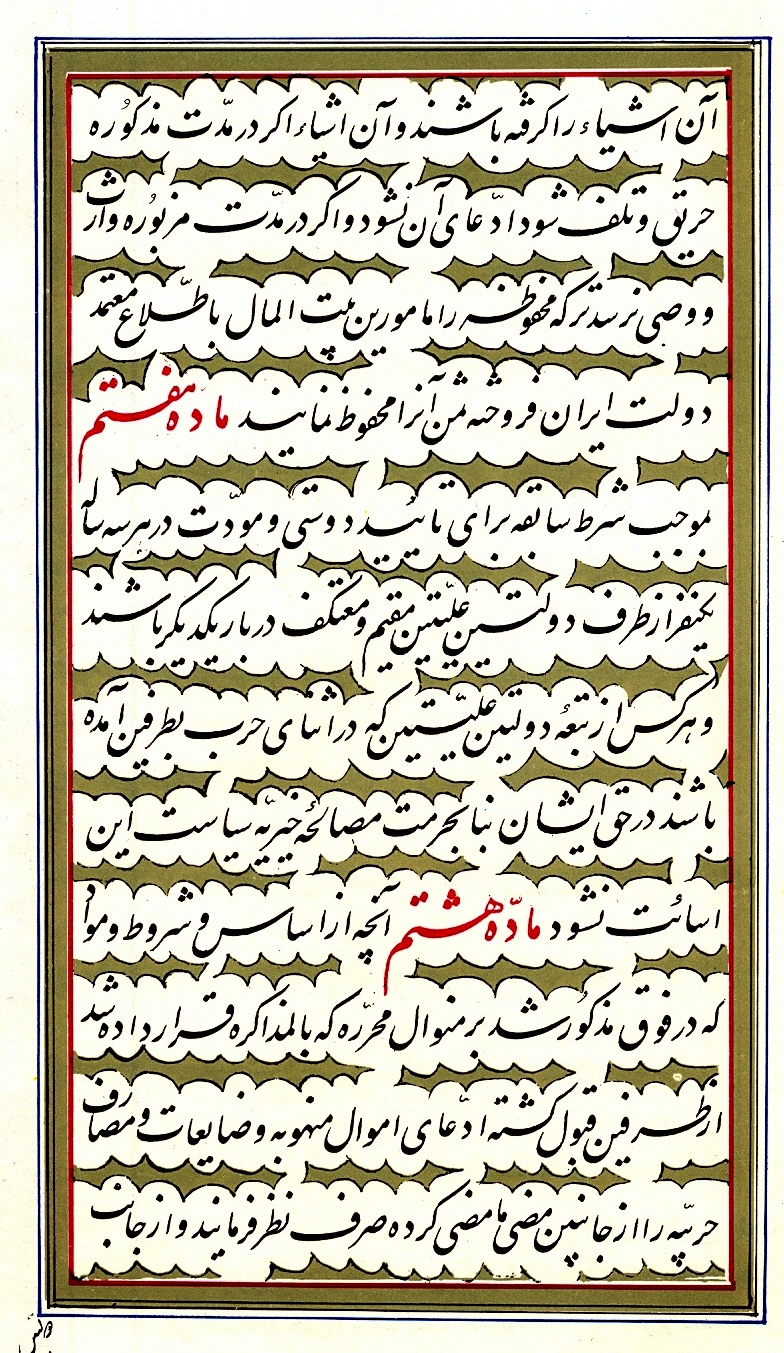 آن اشیاء را گرفته باشند و آن اشیاء اگر در مدّت مذکوره
حریق و تلف شود ادّعای آن نشود و اگر در مدّت مزبوره وارث
و وصی نرسد ترکه محفوظه را مامورین بیت المال باطّلاع معتمد
دولت ایران فروخته ثمن آنرا محفوظ نمایند مادّه هفتم
بموجب شرط سابقه برای تائید دوستی و مودّت در هر سه ساله
یکنفر از طرف دولتین علیّتین مقیم و معتکف دربار یکدیگر باشند
و هر کس از تبعهٔ دولتین علیّتین که در اثنای حرب بطرفین آمده
باشند در حق ایشان بنا بحرمت مصالحهٔ خیریّه سیاست این
اسائت نشود مادّه هشتم آنچه از اساس و شروط و مواد
که در فوق مذکور شد بر منوال محرّره که بالمذاکره قرار داده شد
از طرفین قبول گشته ادّعای اموال منهوبه و ضایعات و مصارف
حربیّه را از جانبین مضی ما مضی کرده صرف نظر فرمایند و از جانب